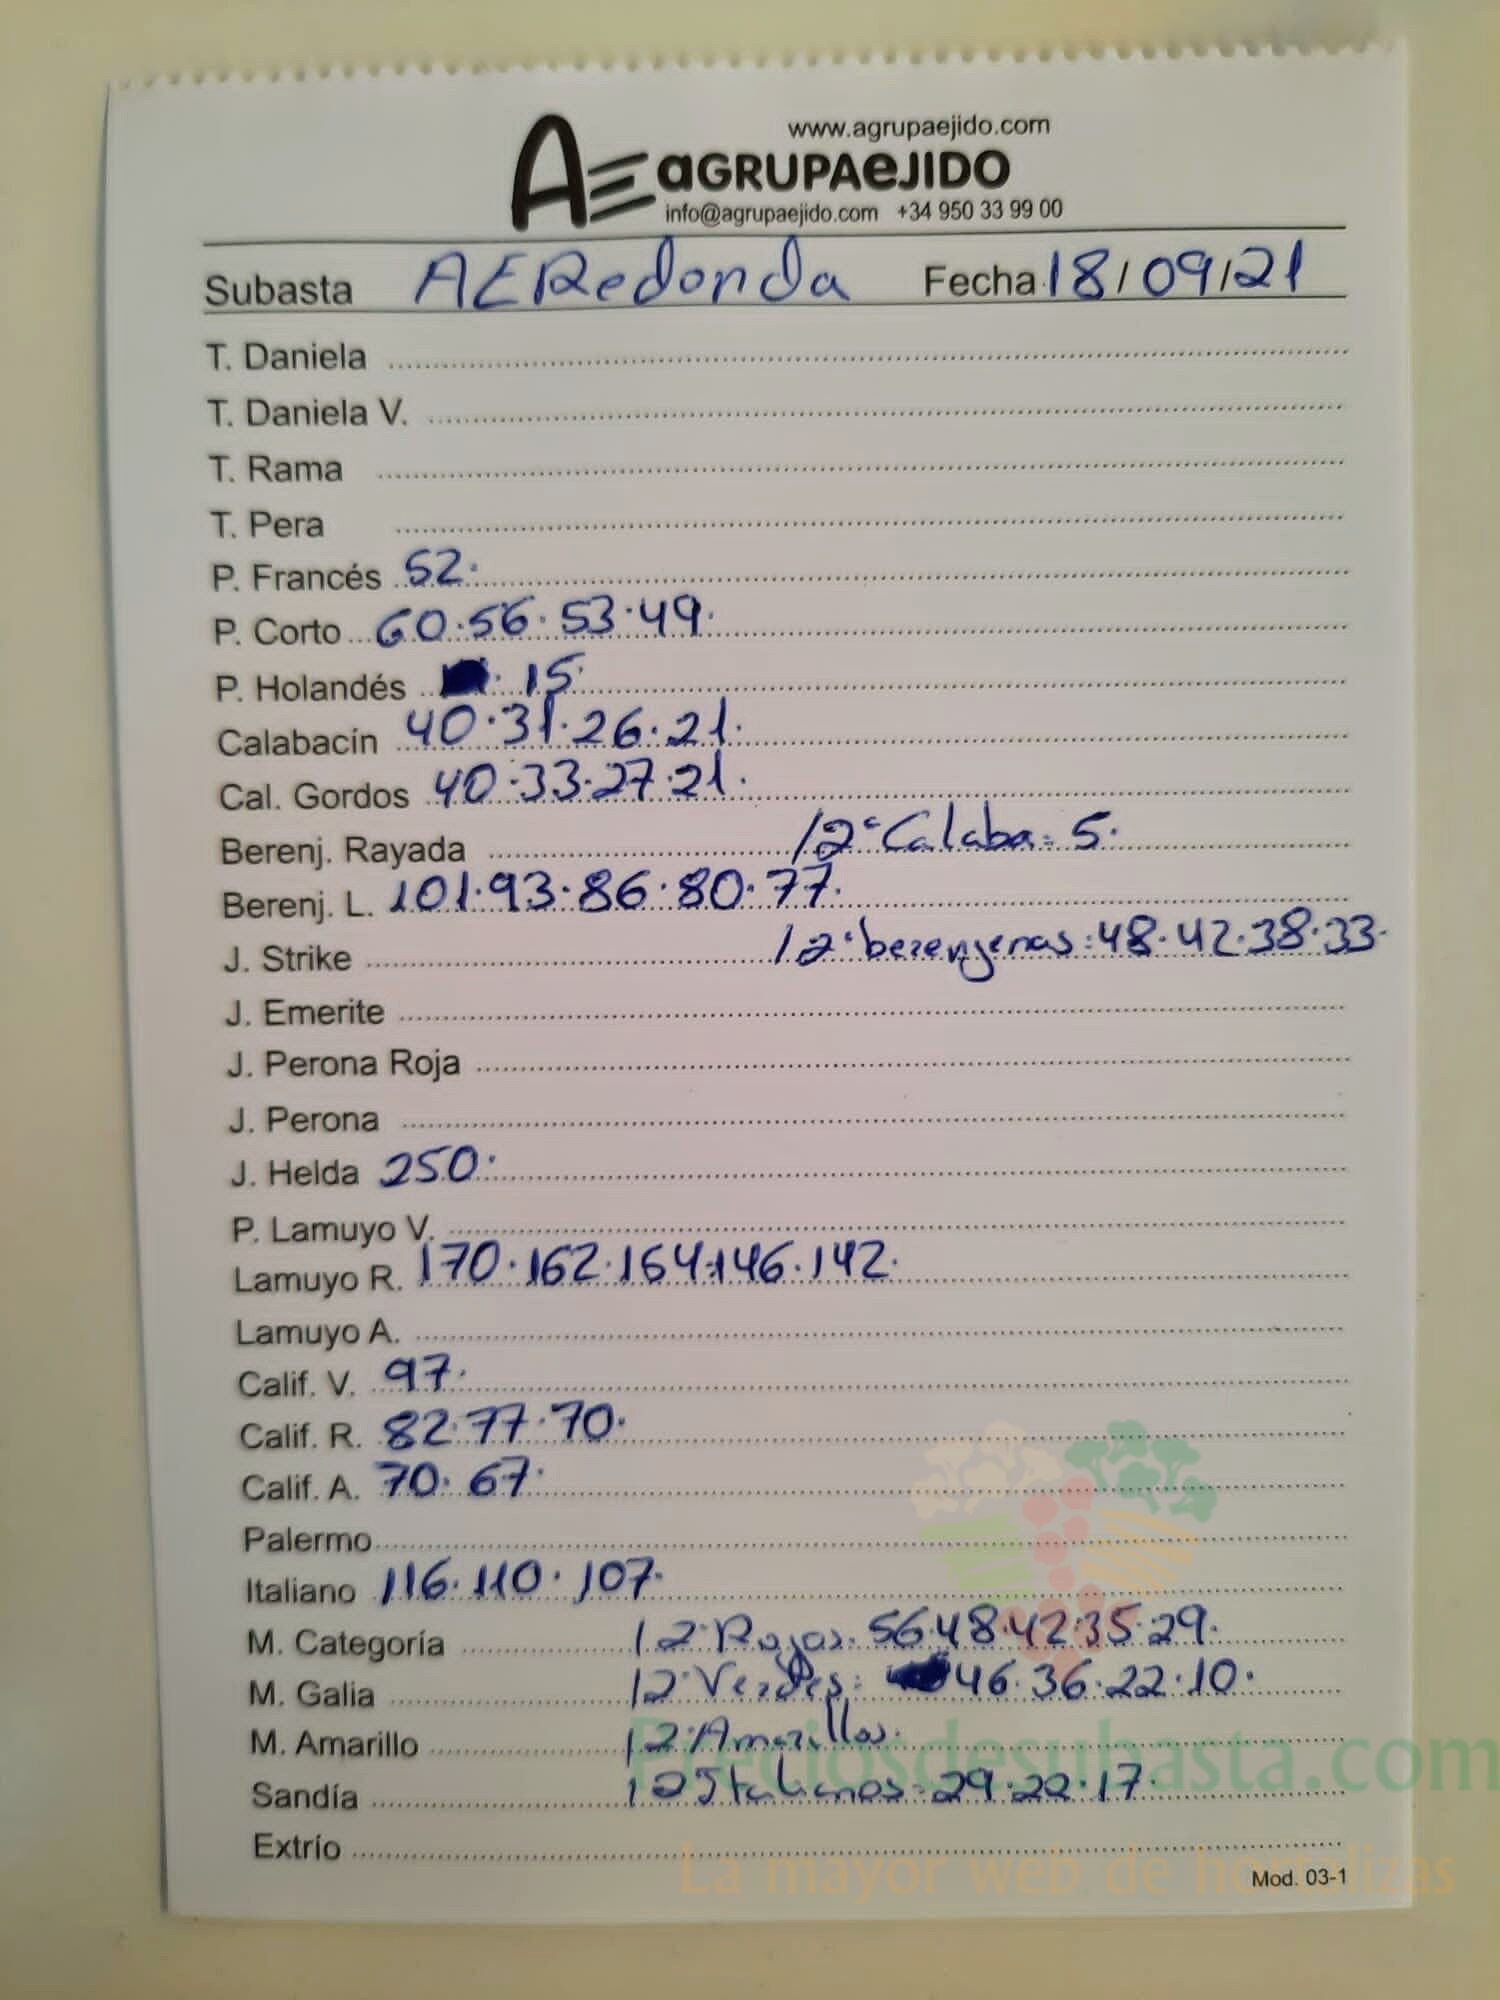 www.agrupaejido.com
AE aGRUPAeJIDO
info@agrupaejido.com +34 950 33 99 00
Subasta AERedonda Fecha 18/09/21
T. Daniela
T. Daniela V.
T. Rama
T. Pera
P. Francés 52.
P. Corto 60.56.53.49.
P. Holandés 15.
Calabacín 40.31.26.21.
Cal. Gordos 40.33.27.21.
Berenj. Rayada /2ª Calaba: 5.
Berenj. L. 101.93.86.80.77.
J. Strike /2ª berenjenas: 48.42.38.33.
J. Emerite
J. Perona Roja
J. Perona
J. Helda 250.
P. Lamuyo V.
Lamuyo R. 170.162.154.146.142.
Lamuyo A.
Calif. V. 97.
Calif. R. 82.77.70.
Calif. A. 70.67.
Palermo
Italiano 116.110.107.
M. Categoría /2ª Rojas. 56.48.42.35.29.
M. Galia /2ª Verdes: 46.36.22.10.
M. Amarillo /2ª Amarillos.
Sandía /2ª Italianos: 29.22.17.
Extrío
Mod. 03-1
Preciosdesubasta.com
La mayor web de hortalizas